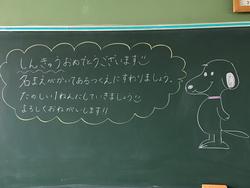 しんきゅうおめでとうございます
名まえがかいてあるつくえにすわりましょう。
たのしい1ねんにしていきましょう
よろしくおねがいします!!